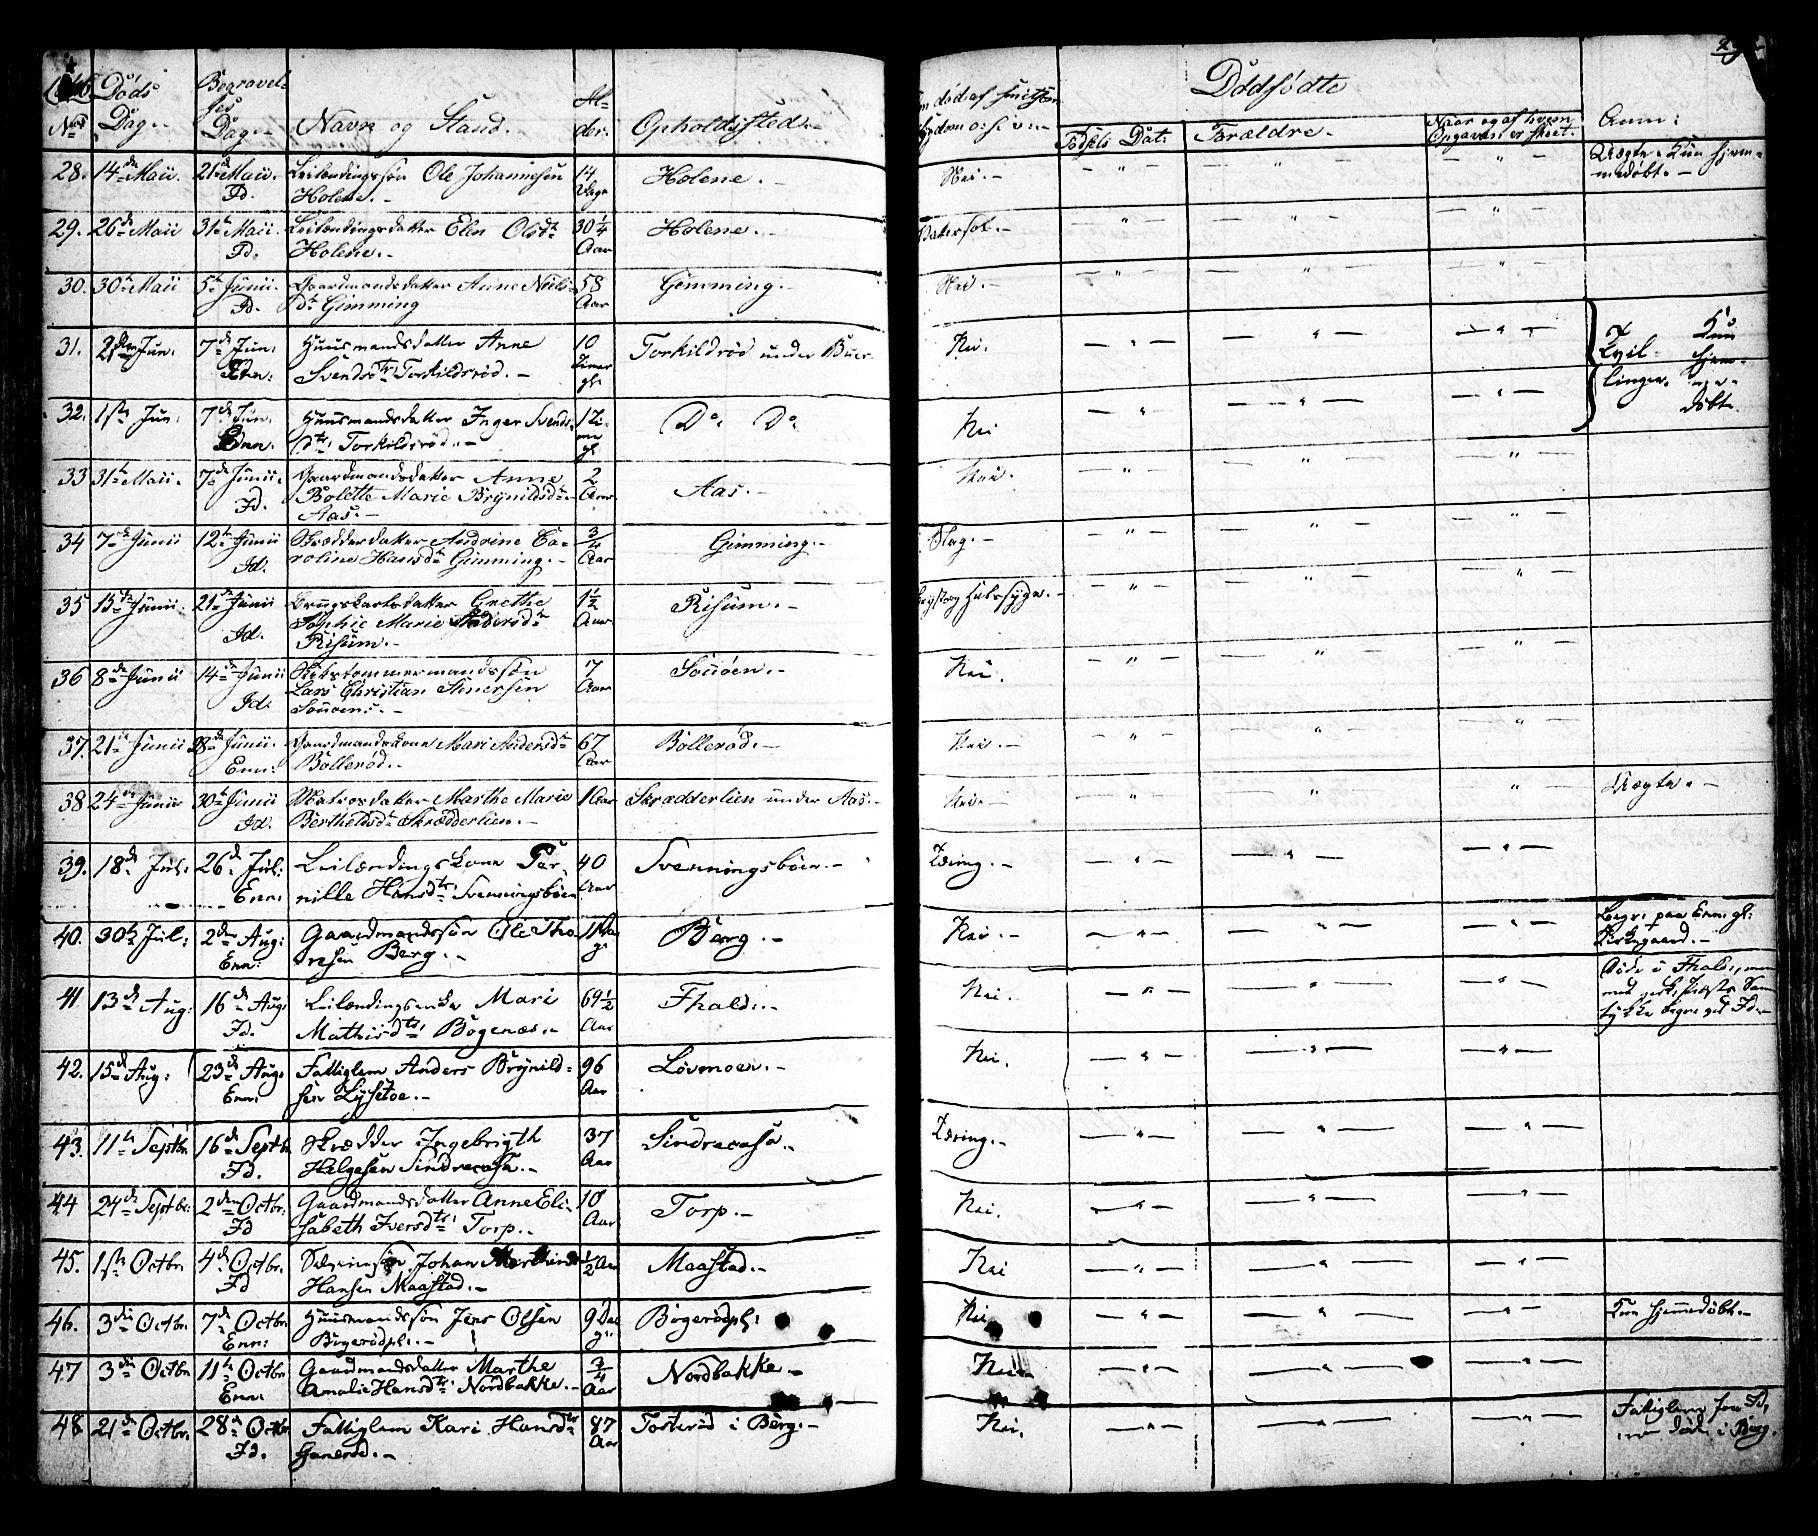 Döds Dag.
Begravelses Dag.
Navn og Stand.
Alder.
Opholdssted.
Dödfödte
Födsels Dat:
Forældre.
Anm:
28. 14de Maii. 21de Maii. Id. Leilændingssön Ole Johannesen Holene. 14 Dage Holene. Nei. Uægte. Kun hjemmedöbt.
29. 26de Maii 31te Maii. Id. Leilændingsdatter Elen Olsdtr Holene. 30 1/4 Aar Holene.
30. 30te Maii 5te Junii. Id. Gaardmandsdatter Anne Nielsdtr Gimming 58 Aar Gimming. Nei.
31. Jun. 7de Jun. Enn: Huusmandsdatter Anne Svendsdtr: Torkildsröd. 10 Timer gl: Torkildröd under Buer Nei. Tvillinger. Kun hjemmedöbt.
32. 1ste Jun. 7de Jun. Enn. Huusmandsdatter Inger Svendsdtr: Torkildsröd. 1 Time gl Do. Do Nei
33 31te Maii. 7de Junii. Id. Gaardmandsdatter Anne Bolette Marie Brynildsdtr Aas. 2 Aar Aas. Nei.
34 7de Junii 12te Junii Id. Skrædderdatter Andrine Caroline Hansdtr Gimming. 3/4 Aar Gimming. Slag.
35 15de Junii. 21de Junii Id. Grethe Sophie Marie Risum. 1 1/2 Aar Risum. Bryst og Halssyge.
36 8de Junii 14de Junii Id. Skibstömmermandssön Lars Christian Souöen. 7 Aar Souöen. Nei.
37. 21de Junii 28de Junii. Enn: Gaardmandskone Mari Andersdtr Bölleröd. 67 Aar Bölleröd. Nei.
38 24de Junii 30te Junii Id. Matrosdatter Marthe Marie Bertheldsdtr Skrædderlien. 1 Aar Skrædderlien under Aas. Nei. Uægte.
39. 18de Jul: 26de Jul: Enn: Leilændingskone Pernille Hansdtr: Svenningsböen 40 Aar Svenningsböen. Tæring.
40. 30te Jul: 2den Aug: Enn: Gaardmandssön Ole Thoresen Berg. Berg. Nei. Begr: paa Enn: gl: Kirkegaard.
41 13de Aug: 16de Aug: Id. Leilændingsenke Mari Mathisdtr: Bogenæs. 69 1/2 Aar Fhald. Nei. Döde i Fhald, men med begr: ved Id.
42. 15de Aug: 23de Aug: Enn: Fattiglem Anders Brynildsen Lysetoe. 96 Aar Lövmoen. Nei.
43. 11te Septbr 16de Septbr Id. Skrædder Ingebrigth Helgesen Sindrecasa. 37 Aar Sindrecasa. Tæring.
44 24de Septbr: 2den Octbr: Id Gaardmandsdatter Anne Elisabeth Iversdtr: Torp. 10 Aar Torp. Nei.
45. 1ste Octbr. 4de Octbr. Id Johan Hansen Maastad. 1/2 Aar Maastad. Nei
46. 3die Octbr. 7de Octbr. Enn: Huusmandssön Jens Olsen Bögerödpl:. 9 Dage Bögerödpl: Nei Kun hjemmedöbt.
47 3die Octbr 11te Octbr Enn: Gaardmandsdatter Marthe Amalie Hansdtr: Nordbakke. 3/4 Aar Nordbakke. Nei.
48. 21de Octbr. 28de Octbr Id. Fattiglem Kari Hansdtr 87 Aar Tosteröd i Berg. Nei. Fattiglem fra Id, död i Berg.